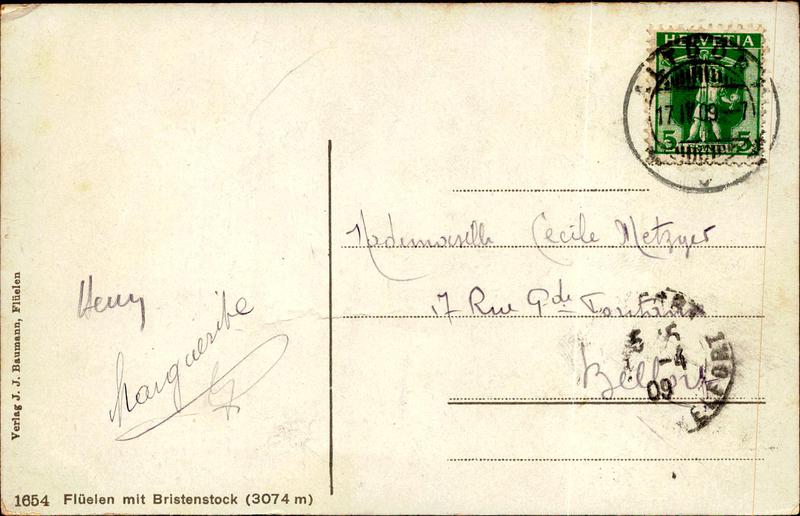 HELVETIA
17.IV.09.-7
5 5
Mademoiselle Cecile Metzger
17 Rue Gde Fontaine
Belfort
-4
09
Henry
Marguerite
Verlag J. J. Baumann, Flüelen
1654 Flüelen mit Bristenstock (3074 m)